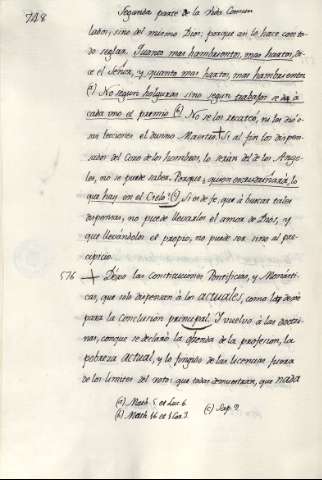 748
Segunda parte de la Vida Comun
lador, sino del mismo Dios, porque asi lo hace con to-
do seglar. Quanto mas hambrientos, mas hartos, di-
ce el Señor, y quanto mas hartos, mas hambrientos
(a) No segun holguras sino segun trabajos se da à
cada uno el premio (b) No se los recateè, ni los dixe-
ran lecciones el divino Maestro. + Si al fin los dispen-
sados del Coro de los hombres, lo seran del de los Ange-
les, no se puede saber. Porque, quien escudriñarà lo
que hay en el Cielo? (c) Si es de fe, que à buscar tales
dispensas, no puede llevarles el amor de Dios, y
que llevandoles el propio, no puede ser sino al pre-
cipicio.
576 + Dexo las constituciones Pontificias, y Monasti-
cas, que solo dispensan à los actuales, como lo dexè
para la conclusion principal. Y vuelvo à las doctri-
nas, con que se declarò la ofrenda de la profesion, la
pobreza actual, y lo fingido de las licencias fuera
de los limites del voto: que todas demuestran, que nada
(a) Math. 5. et Luc. 6.
(b) Math. 16. et 1. Cor. 3.
(c) Sap. 9.